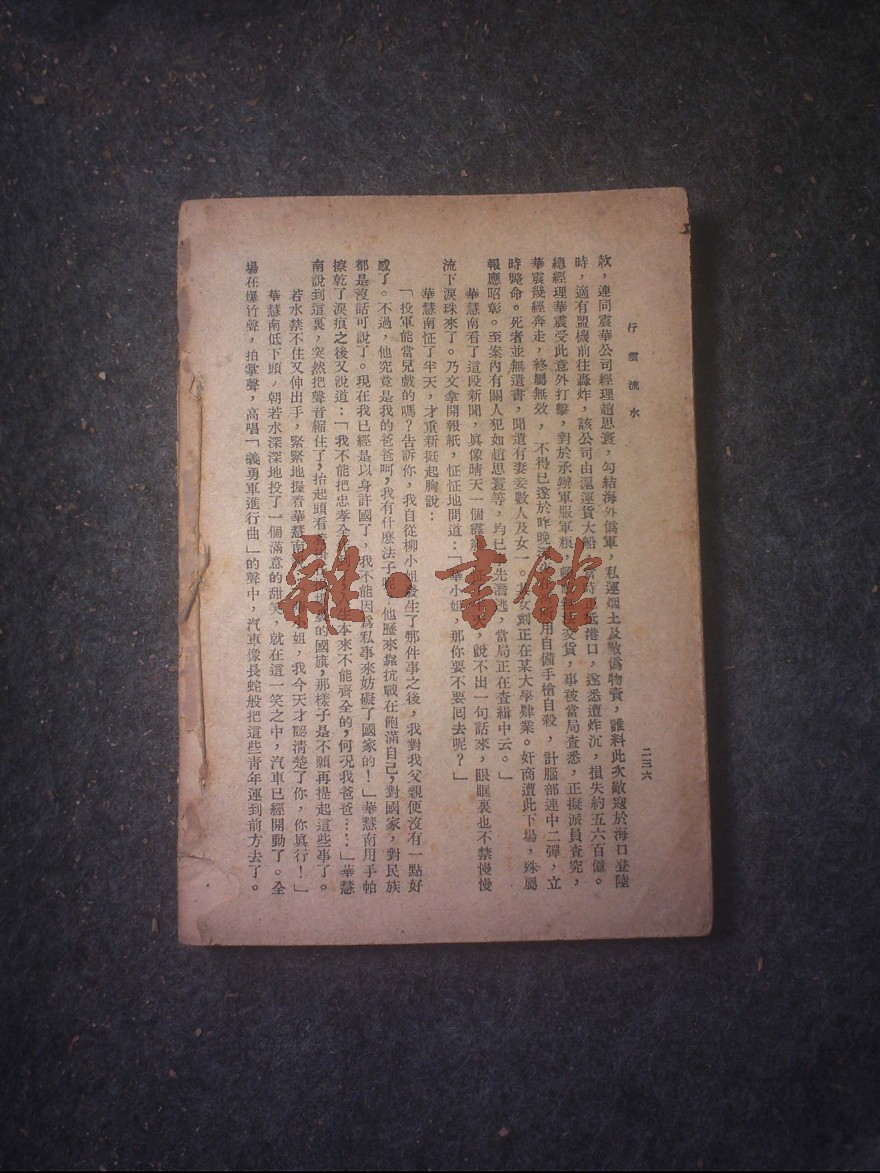 行雲流水
二三六
款，連同震華公司經理趙思寰，勾結海外僞軍，私運烟土及敵僞物資，誰料此次敵寇於海口登陸
時，適有盟機前往轟炸，該公司由滬運貨大船，當時抵港口，遂悉遭炸沉，損失約五六百億。
總經理華震受此意外打擊，對於承辦軍服軍粮，交貨，事被當局查悉，正擬派員查究，
華震幾經奔走，終屬無效，不得已遂於昨晚用自備手槍自殺，計腦部連中二彈，立
時斃命。死者並無遺書，聞遺有妻妾數人及女一。其女刻正在某大學肄業。奸商遭此下場，殊屬
報應昭彰。至案內有關人犯如趙思寰等，均已先潛逃，當局正在查緝中云。」
華慧南看了這段新聞，眞像晴天一個霹，說不出一句話來，眼眶裏也不禁慢慢
流下淚珠來了。乃文拿開報紙，怔怔地問道：「華小姐，那你要不要回去呢？」
華慧南怔了半天，才重新挺起胸說：
「投軍能當兒戲的嗎？告訴你，我自從柳小姐發生了那件事之後，我對我父親便沒有一點好
感了。不過，他究竟是我的爸爸呵，我有什麼法子呢，他歷來靠抗戰在飽滿自己，對國家，對民族
都是沒話可說了。現在我已經是以身許國了，我不能因爲私事來妨礙了國家的！」華慧南用手帕
擦乾了淚痕之後又說道：「我不能把忠孝全本來不能齊全的，何況我爸爸……」華慧
南說到這裏，突然把聲音縮住了，抬起頭看的國旗，那樣子是不願再提起這些事了。
若水禁不住又伸出手，緊緊地握着華慧南小姐，我今天才認清楚了你，你眞行！」
華慧南低下頭，朝若水深深地投了一個滿意的甜笑，就在這一笑之中，汽車已經開動了。全
場在爆竹聲，拍掌聲，高唱「義勇軍進行曲」的聲中，汽車像長蛇般把這些青年運到前方去了。
雜·書館